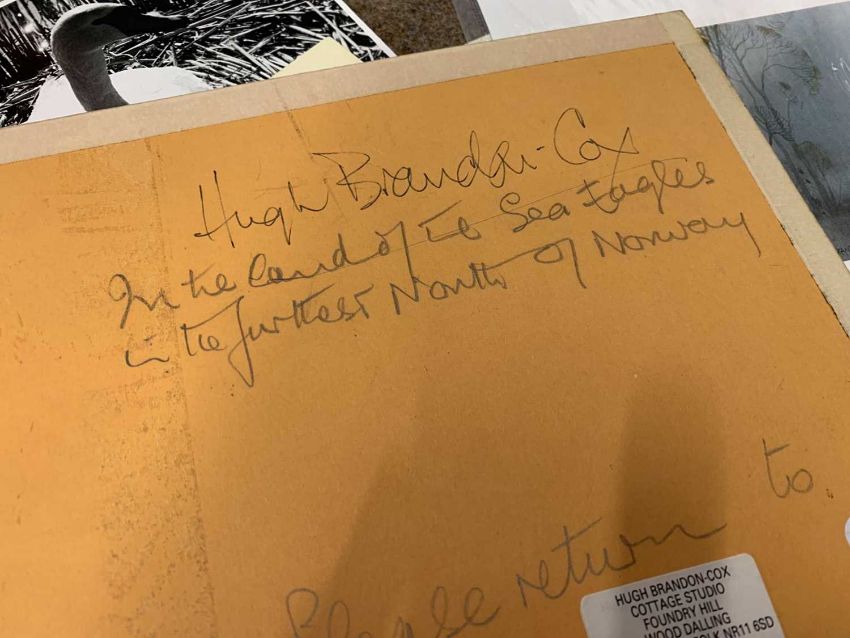 Hugh Brandon-Cox
In the land of te Sea Eagles
in the furthest North of Norway
Please return to.
HUGH BRANDON-COX
COTTAGE STUDIO
FOUNDRY HILL
WOOD DALLING
K NR11 6SD